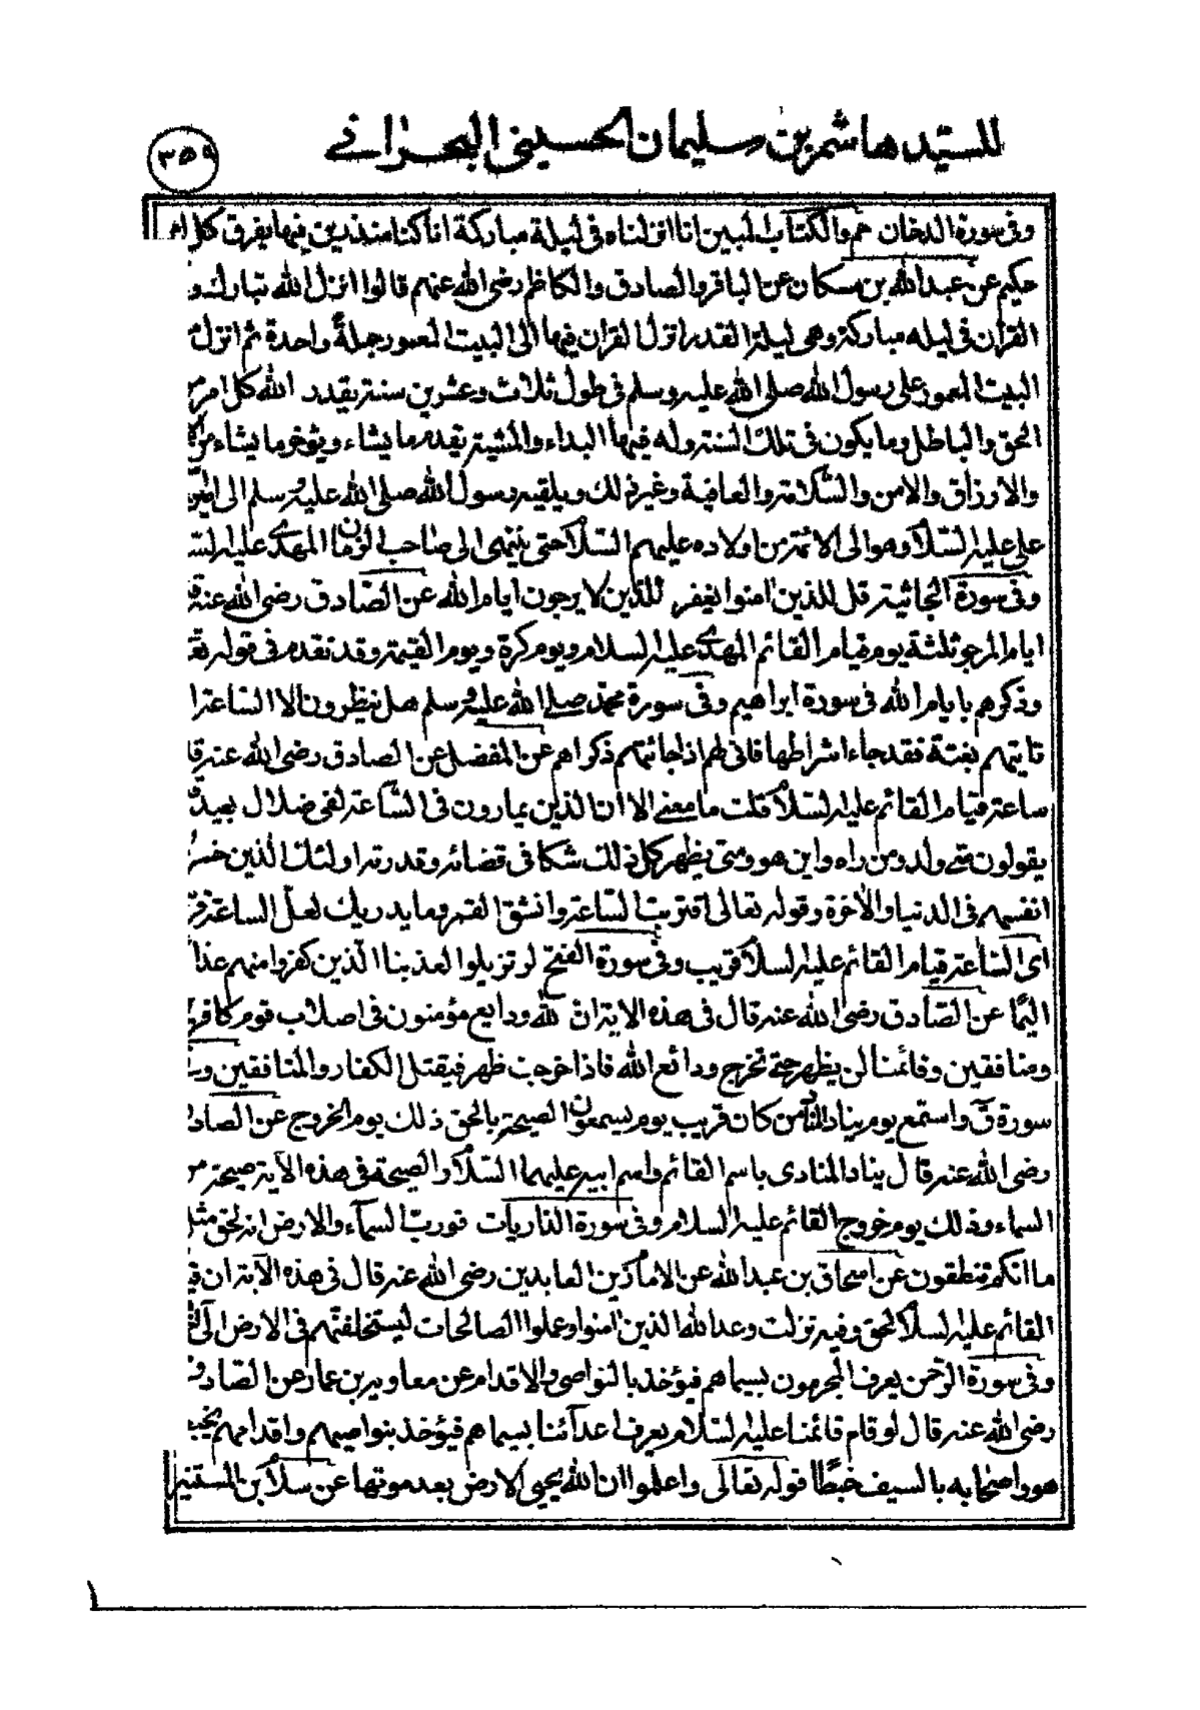 للسيد هاشم بن سليمان الحسينى البحرانى
٣٥٩
وفى سورة الدخان حم والكتاب المبين انا انزلناه فى ليلة مباركة انا كنا منذرين فيها يفرق كل امر
حكيم عن عبد الله بن مسكان عن الباقر والصادق والكاظم رضى الله عنهم قالوا انزل الله تبارك و
القرآن فى ليله مباركة وهى ليلة القدر انزل القران فيها الى البيت المعمور جملةً واحدة ثم انزل
البيت المعمور على رسول الله صلى الله عليه وسلم فى طول ثلاث وعشرين سنة يقدر الله كل امر من
الحق والباطل وما يكون فى تلك السنة وله فيها البداء والمشية يقدم ما يشاء ويؤخر ما يشاء من
والارزاق والامن والسلامة والعافية وغير ذلك ويلقيه رسول الله صلى الله عليه وسلم الى
على عليه السلام وهو الى الائمة من اولاده عليهم السلام حتى ينتهى الى صاحب الزمان المهدى عليه
وفى سورة الجاثية قل للذين امنوا يغفر للذين لا يرجون ايام الله عن الصادق رضى الله عنه
ايام المرجو ثلثة يوم قيام القائم المهدى عليه السلام ويوم كرة ويوم القيمة وقد تقدم فى قوله
وذكرهم بايام الله فى سورة ابراهيم وفى سورة محمد صلى الله عليه وسلم هل ينظرون الا الساعة ا
تاتيهم بغتة فقد جاء اشراطها فانى لهم اذ جائتهم ذكراهم عن المفضل عن الصادق رضى الله عنه قا
ساعة قيام القائم عليه السلام قلت ما معنى الا ان الذين يمارون فى الساعة لفى ضلال بعيد
يقولون متى ولد ومن راه واين هو ومتى يظهر كل ذلك شكا فى قضائه وقدرته اولئك الذين خسر
انفسهم فى الدنيا والآخرة وقوله تعالى اقتربت الساعة وانشق القمر وما يدريك لعل الساعة قر
اى الساعة قيام القائم عليه السلام قريب وفى سورة الفتح لو تزيلوا لعذبنا الذين كفروا منهم عذا
اليمًا عن الصادق رضى الله عنه قال فى هذه الاية ان لله ودايع مؤمنون فى اصلاب قوم كافر
ومنافقين وقائمنا لن يظهر حتى تخرج ودائع الله فاذا خرجت ظهر فيقتل الكفار والمنافقين و
سورة ق واستمع يوم يناد المناد من مكان قريب يوم يسمعون الصيحة بالحق ذلك يوم الخروج عن الصاد
رضى الله عنه قال يناد المنادى باسم القائم واسم ابيه عليهما السلام والصيحة فى هذه الآية صيحة من
السماء وذلك يوم خروج القائم عليه السلام وفى سورة الذاريات فورب السمآء والارض انه لحق مثل
ما انكم تنطقون عن اسحاق بن عبد الله عن الامام زين العابدين رضى الله عنه قال فى هذه الآية ان
القائم عليه السلام لحق وفيه نزلت وعد الله الذين آمنوا وعملوا الصالحات ليستخلفنهم فى الارض
وفى سورة الرحمن يعرف المجرمون بسيماهم فيؤخذ بالنواصى والاقدام عن معاوية بن عمار عن الصاد
رضى الله عنه قال لو قام قائمنا عليه السلام يعرف اعدآئنا بسيماهم فيؤخذ بنواصيهم واقدامهم
هو واصحابه بالسيف خبطًا قوله تعالى واعلموا ان الله يحيى الارض بعد موتها عن سلام بن المستنير